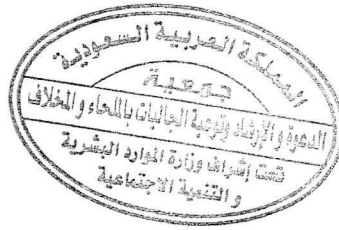 المملكة العربية السعودية
جمعية
الدعوة و الإرشاد وتوعية الجاليات باللحاء و الخلاف
تحت إشراف وزارة الموارد البشرية
و التنمية الاجتماعية